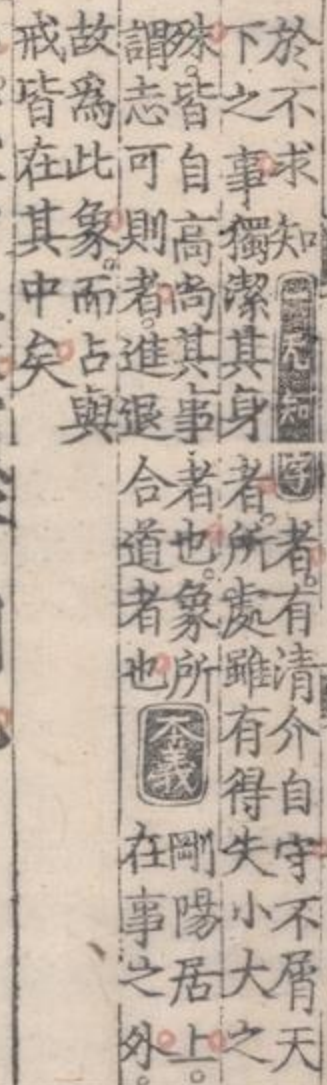 於不求知一无知字者有清介自守不屑天
下之事獨潔其身者所處雖有得失小大之
殊皆自高尚其事者也象所
謂志可則者進退合道者也
本義
剛陽居上
在事之外
故爲此象而占與
戒皆在其中矣